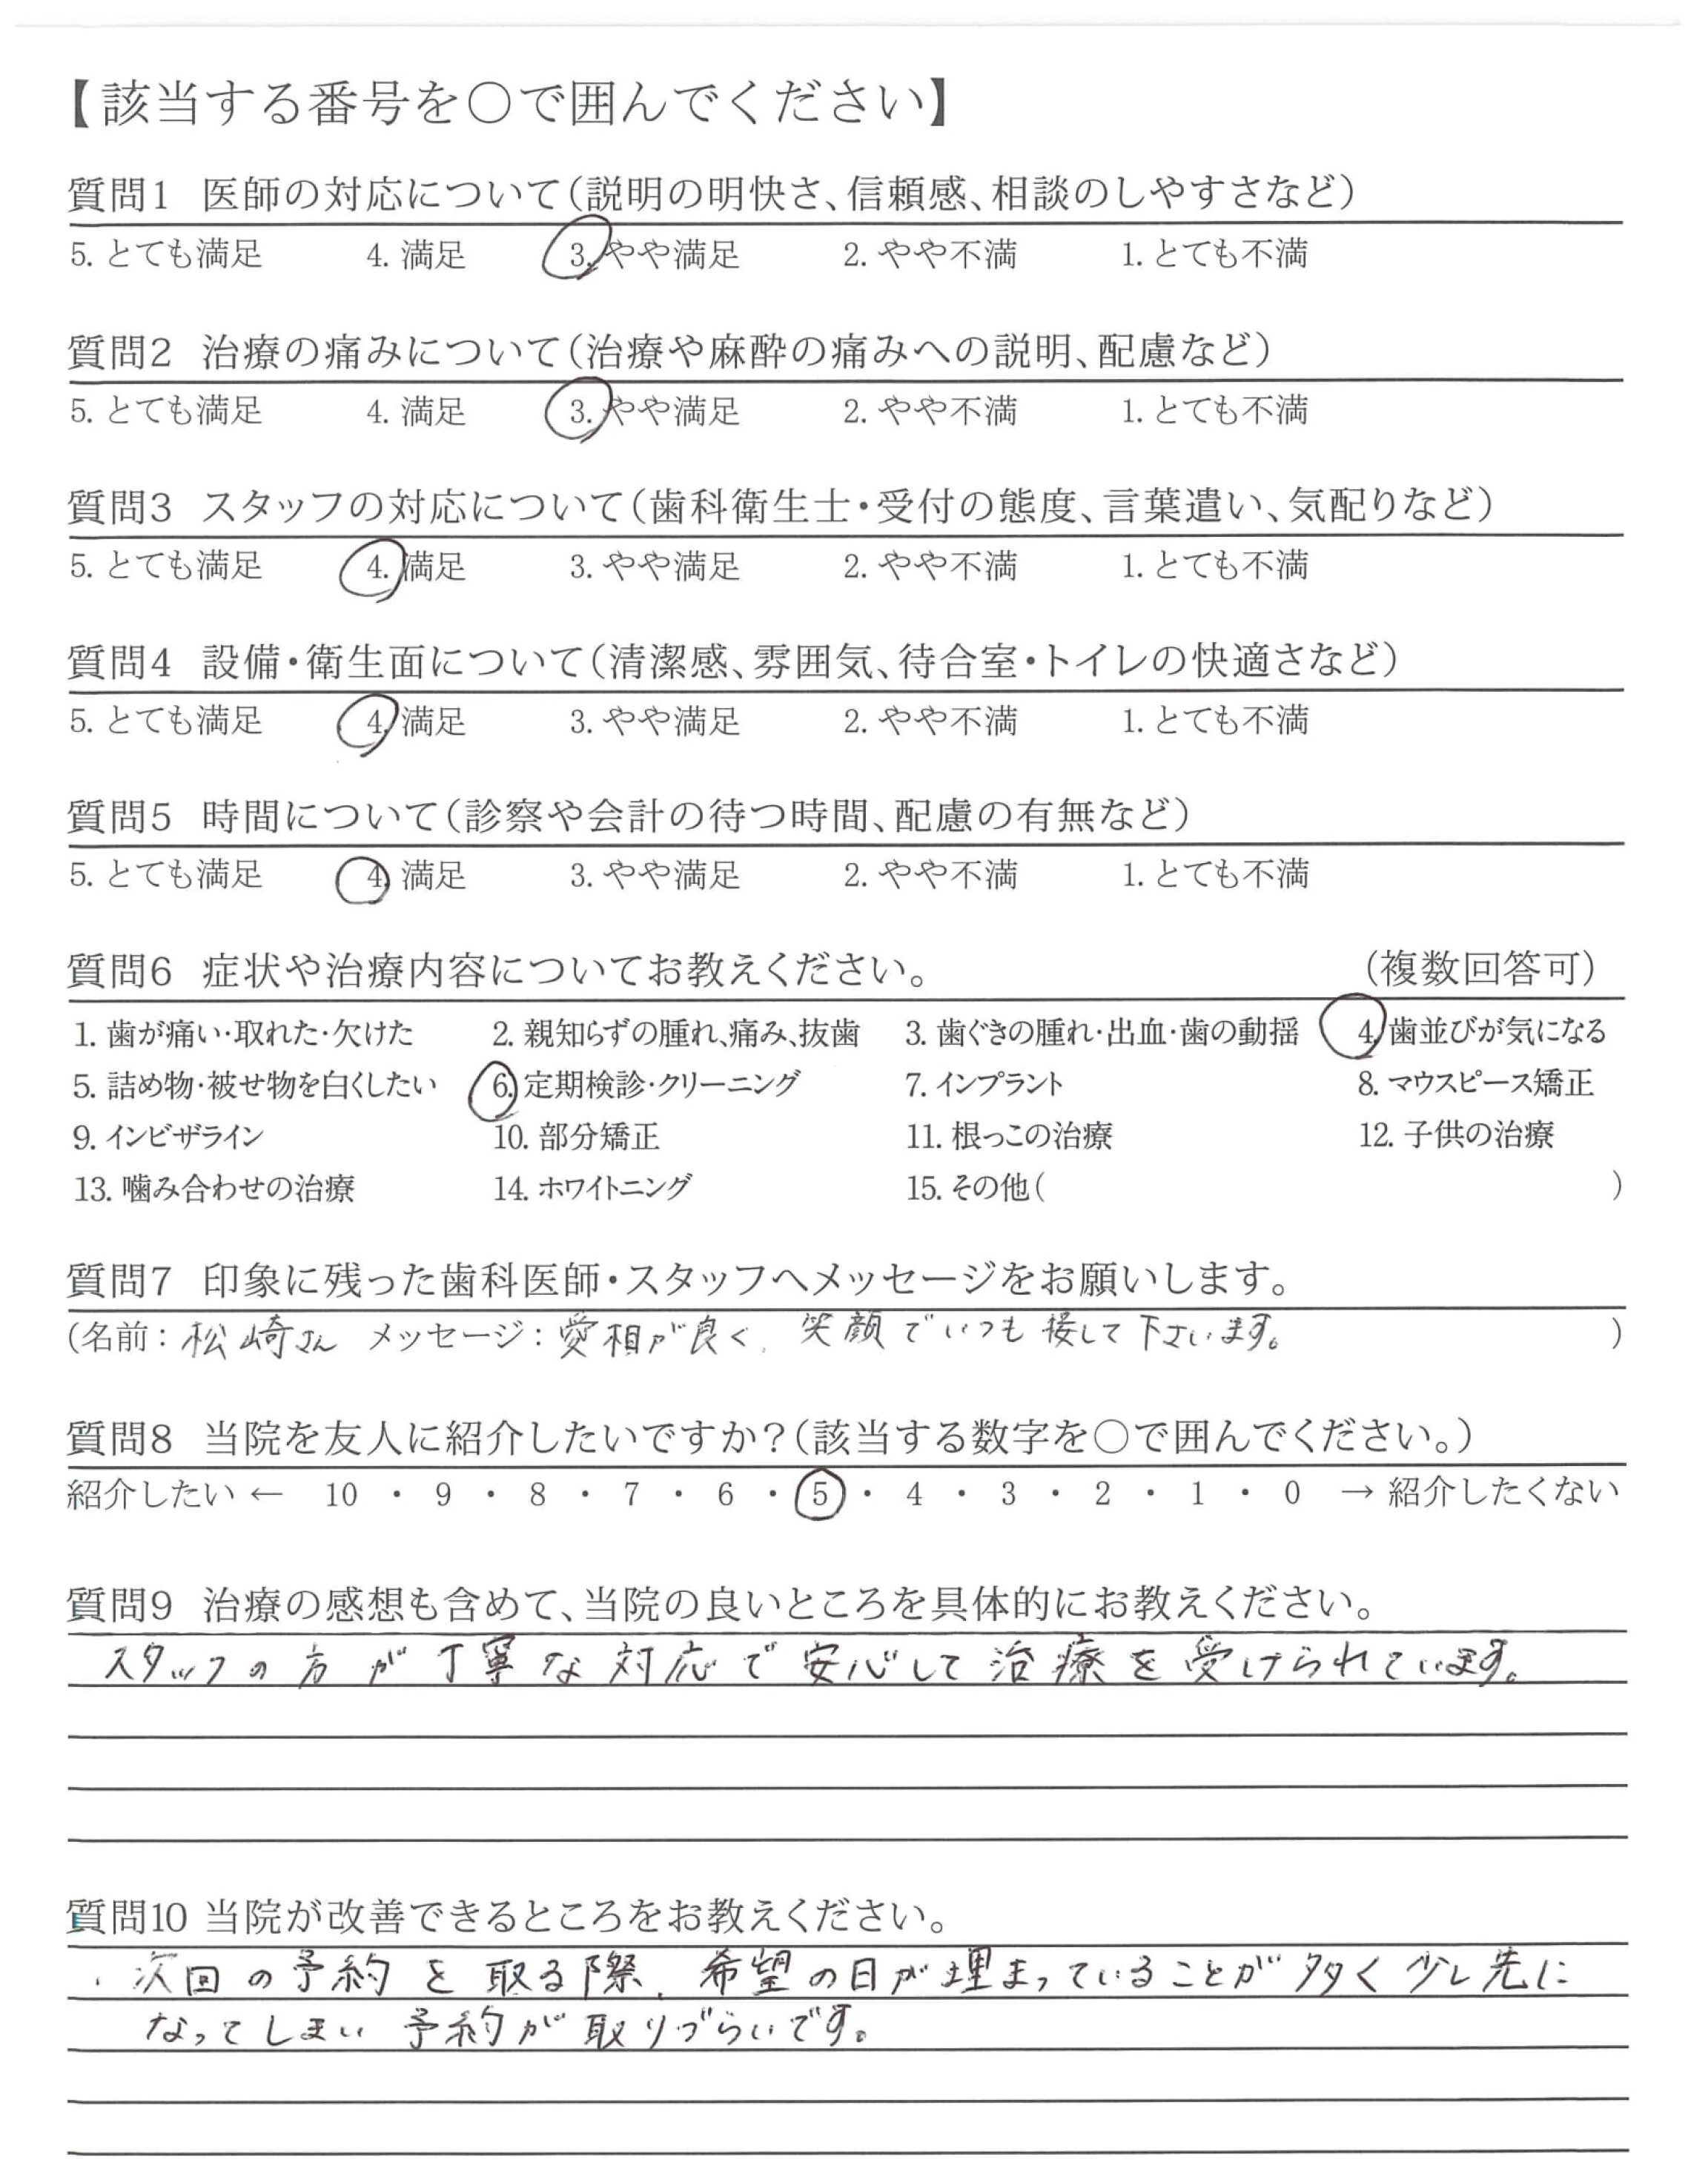 【該当する番号を○で囲んでください】
質問1 医師の対応について(説明の明快さ、信頼感、相談のしやすさなど)
5. とても満足 4. 満足 3. やや満足 2. やや不満 1. とても不満
質問2 治療の痛みについて(治療や麻酔の痛みへの説明、配慮など)
5. とても満足 4. 満足 3. やや満足 2. やや不満 1. とても不満
質問3 スタッフの対応について(歯科衛生士・受付の態度、言葉遣い、気配りなど)
5. とても満足 4. 満足 3. やや満足 2. やや不満 1. とても不満
質問4 設備・衛生面について(清潔感、雰囲気、待合室・トイレの快適さなど)
5. とても満足 4. 満足 3. やや満足 2. やや不満 1. とても不満
質問5 時間について(診察や会計の待つ時間、配慮の有無など)
5. とても満足 4. 満足 3. やや満足 2. やや不満 1. とても不満
質問6 症状や治療内容についてお教えください。 (複数回答可)
1. 歯が痛い・取れた・欠けた 2. 親知らずの腫れ、痛み、抜歯 3. 歯ぐきの腫れ・出血・歯の動揺 4. 歯並びが気になる
5. 詰め物・被せ物を白くしたい 6. 定期検診・クリーニング 7. インプラント 8. マウスピース矯正
9. インビザライン 10. 部分矯正 11. 根っこの治療 12. 子供の治療
13. 噛み合わせの治療 14. ホワイトニング 15. その他( )
質問7 印象に残った歯科医師・スタッフへメッセージをお願いします。
(名前: 松崎さん メッセージ: 愛相が良く、笑顔でいつも接して下さいます。 )
質問8 当院を友人に紹介したいですか?(該当する数字を○で囲んでください。)
紹介したい ← 10 ・ 9 ・ 8 ・ 7 ・ 6 ・ 5 ・ 4 ・ 3 ・ 2 ・ 1 ・ 0 → 紹介したくない
質問9 治療の感想も含めて、当院の良いところを具体的にお教えください。
スタッフの方が丁寧な対応で安心して治療を受けられています。
質問10 当院が改善できるところをお教えください。
・次回の予約を取る際、希望の日が埋まっていることが多く少し先に
なってしまい予約が取りづらいです。